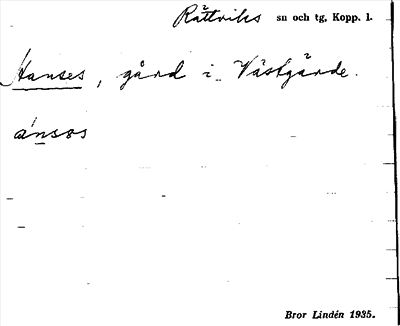 Rättviks sn och tg, Kopp. l.
Hanses, gård i Västgärde.
ánsos
Bror Lindén 1935.